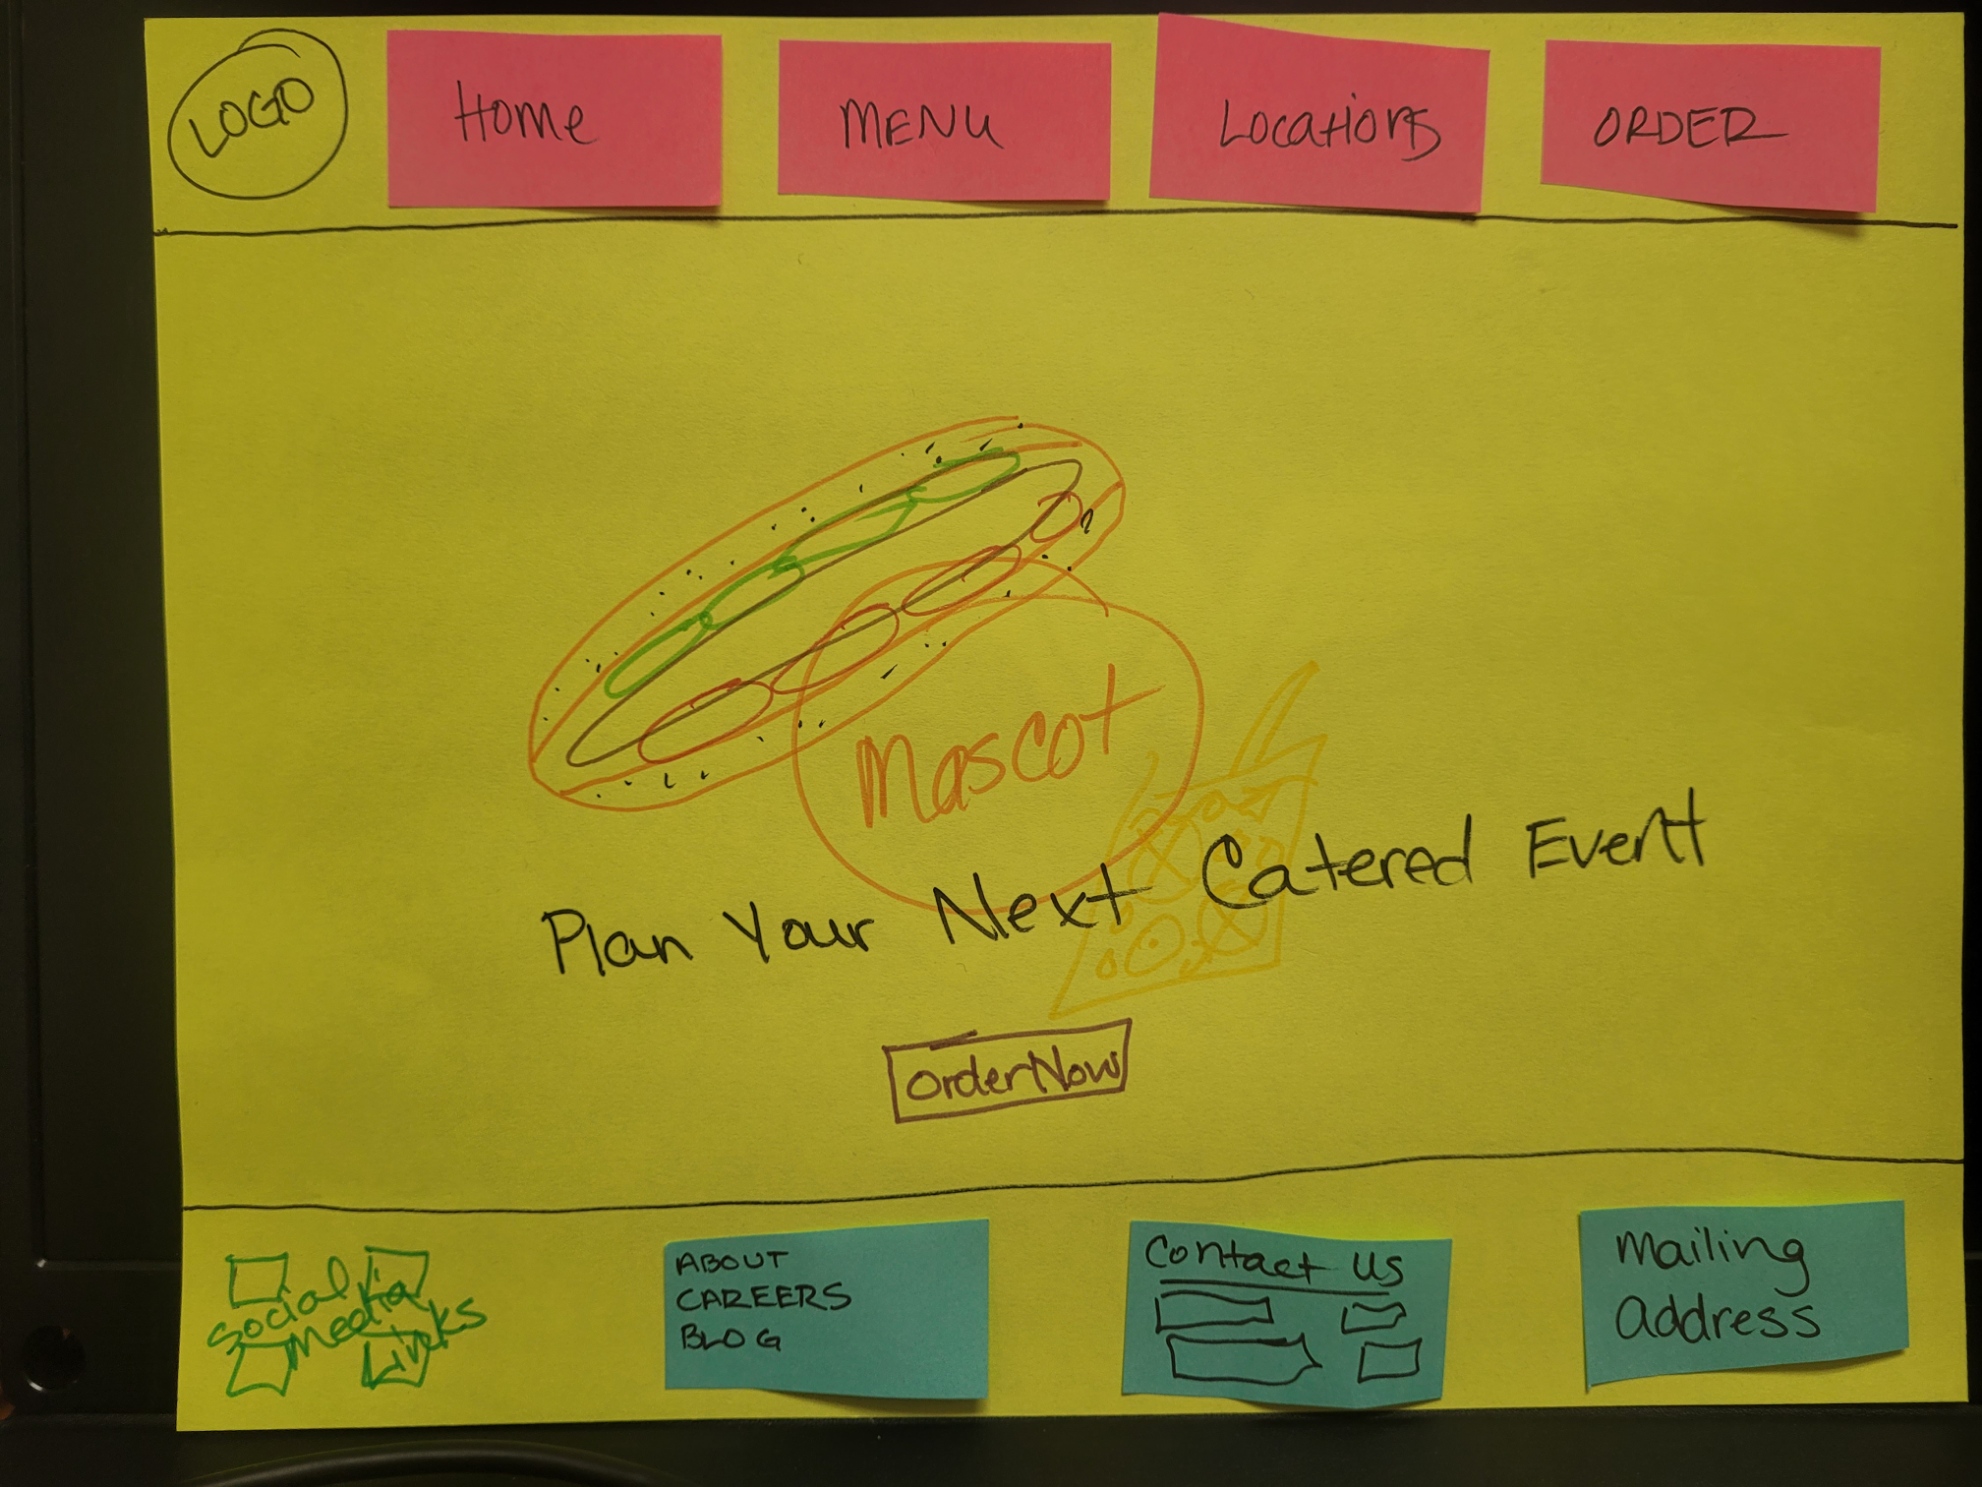 LOGO
Home
MENU
Locations
ORDER
Mascot
Plan Your Next Catered Event
OrderNow
Social Media Links
ABOUT
CAREERS
BLOG
Contact Us
Mailing
Address